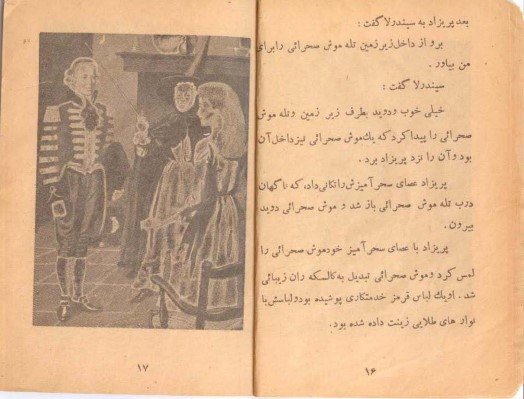 بعد پریزاد به سیندرلا گفت :
برو از داخل زیرزمین تله موش صحرائی رابرای
من بیاور .
سیندرلا گفت :
خیلی خوب ودوید بطرف زیر زمین وتله موش
صحرائی را پیداکردکه یك موش صحرائی نیزداخل آن
بود وآن را نزد پریزاد برد .
پریزاد عصای سحرآمیزش راتکانی داد، که ناگهان
درب تله موش صحرائی باز شد و موش صحرائی دوید
بیرون .
پریزاد با عصای سحرآمیز خودموش صحرائی را
لمس کرد وموش صحرائی تبدیل به کالسکه ران زیبائی
شد . اویك لباس قرمز خدمتکاری پوشیده بودولباسش با
نوار های طلایی زینت داده شده بود.
۱۶
۱۷